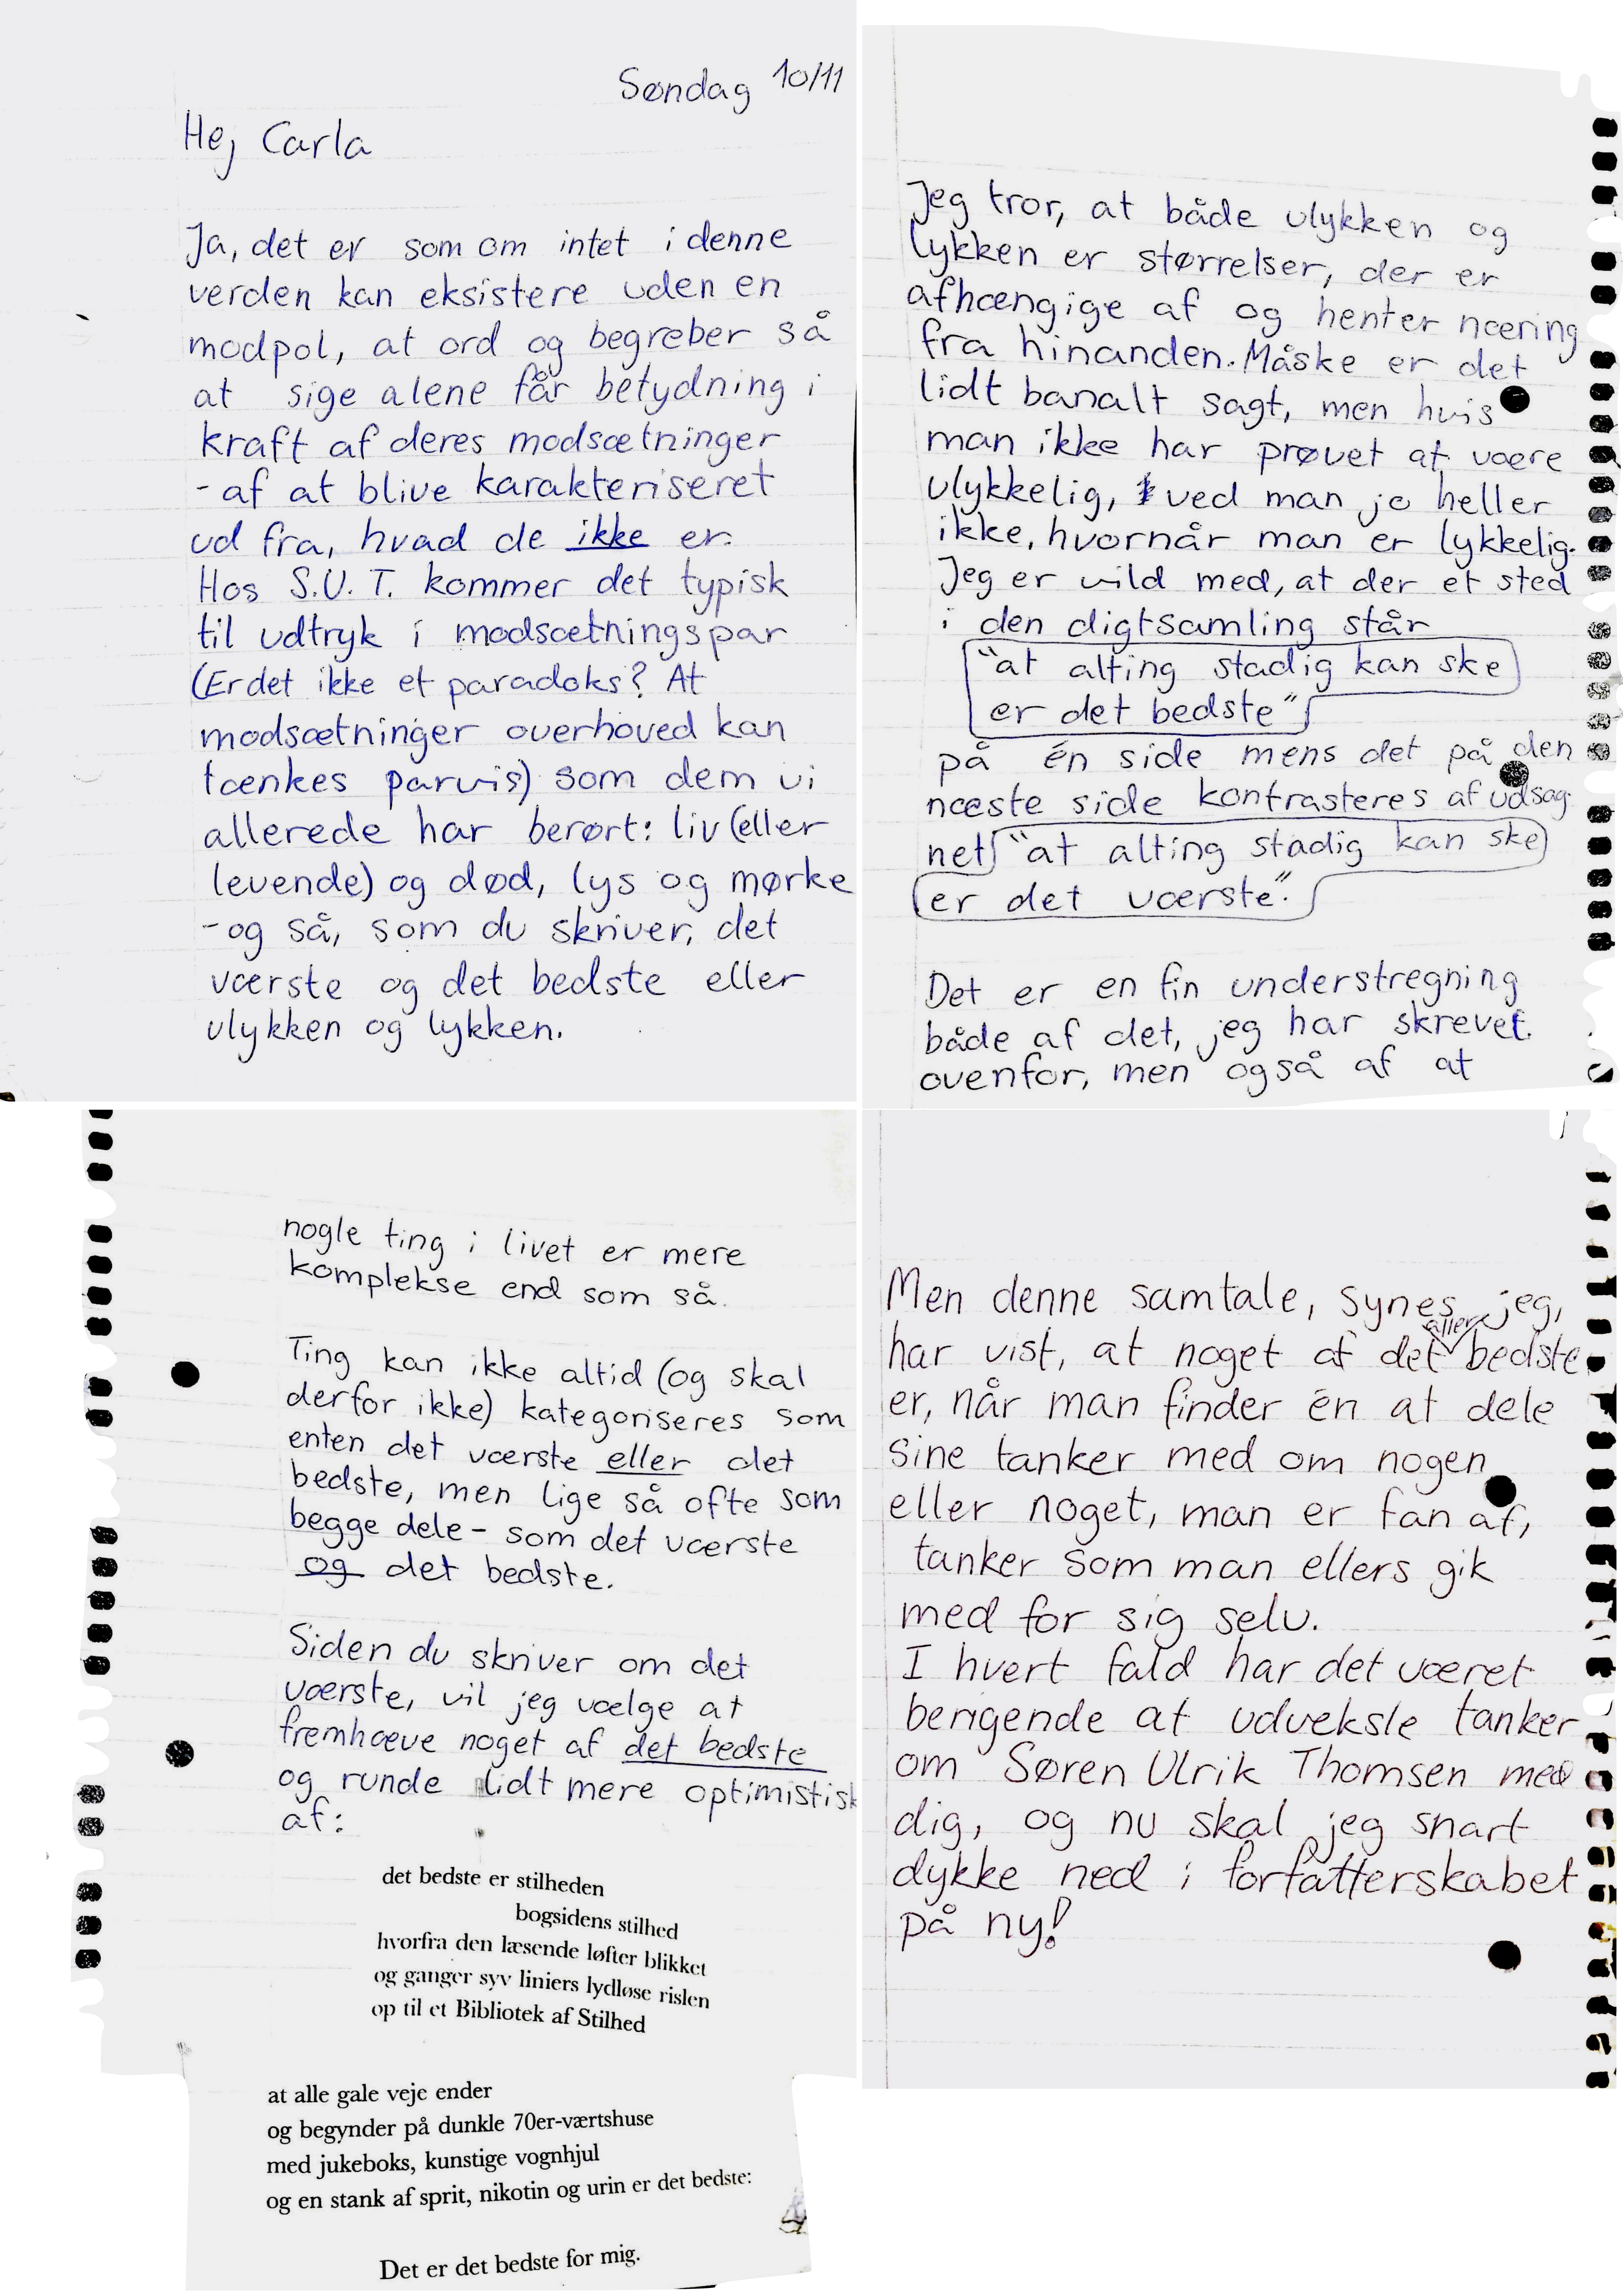 Søndag 10/11
Hej Carla
Ja, det er som om intet i denne
verden kan eksistere uden en
modpol, at ord og begreber så
at sige alene får betydning i
kraft af deres modsætninger
- af at blive karakteriseret
ud fra, hvad de ikke er.
Hos S.U.T. kommer det typisk
til udtryk i modsætningspar
(Er det ikke et paradoks? At
modsætninger overhoved kan
tænkes parvis) som dem vi
allerede har berørt: liv (eller
levende) og død, lys og mørke
- og så, som du skriver, det
værste og det bedste eller
ulykken og lykken.
Jeg tror, at både ulykken og
lykken er størrelser, der er
afhængige af og henter næring
fra hinanden. Måske er det
lidt banalt sagt, men hvis
man ikke har prøvet at være
ulykkelig, ved man jo heller
ikke, hvornår man er lykkelig.
Jeg er vild med, at der et sted
i den digtsamling står
"at alting stadig kan ske
er det bedste"
på én side mens det på den
næste side kontrasteres af udsag-
net "at alting stadig kan ske
er det værste".
Det er en fin understregning
både af det, jeg har skrevet
ovenfor, men også af at
nogle ting i livet er mere
komplekse end som så.
Ting kan ikke altid (og skal
derfor ikke) kategoriseres som
enten det værste eller det
bedste, men lige så ofte som
begge dele - som det værste
og det bedste.
Siden du skriver om det
værste, vil jeg vælge at
fremhæve noget af det bedste
og runde lidt mere optimistisk
af:
det bedste er stilheden
bogsidens stilhed
hvorfra den læsende løfter blikket
og ganger syv liniers lydløse rislen
op til et Bibliotek af Stilhed
at alle gale veje ender
og begynder på dunkle 70er-værtshuse
med jukeboks, kunstige vognhjul
og en stank af sprit, nikotin og urin er det bedste:
Det er det bedste for mig.
Men denne samtale, synes jeg,
har vist, at noget af det aller bedste
er, når man finder én at dele
sine tanker med om nogen
eller noget, man er fan af,
tanker som man ellers gik
med for sig selv.
I hvert fald har det været
berigende at udveksle tanker
om Søren Ulrik Thomsen med
dig, og nu skal jeg snart
dykke ned i forfatterskabet
på ny!